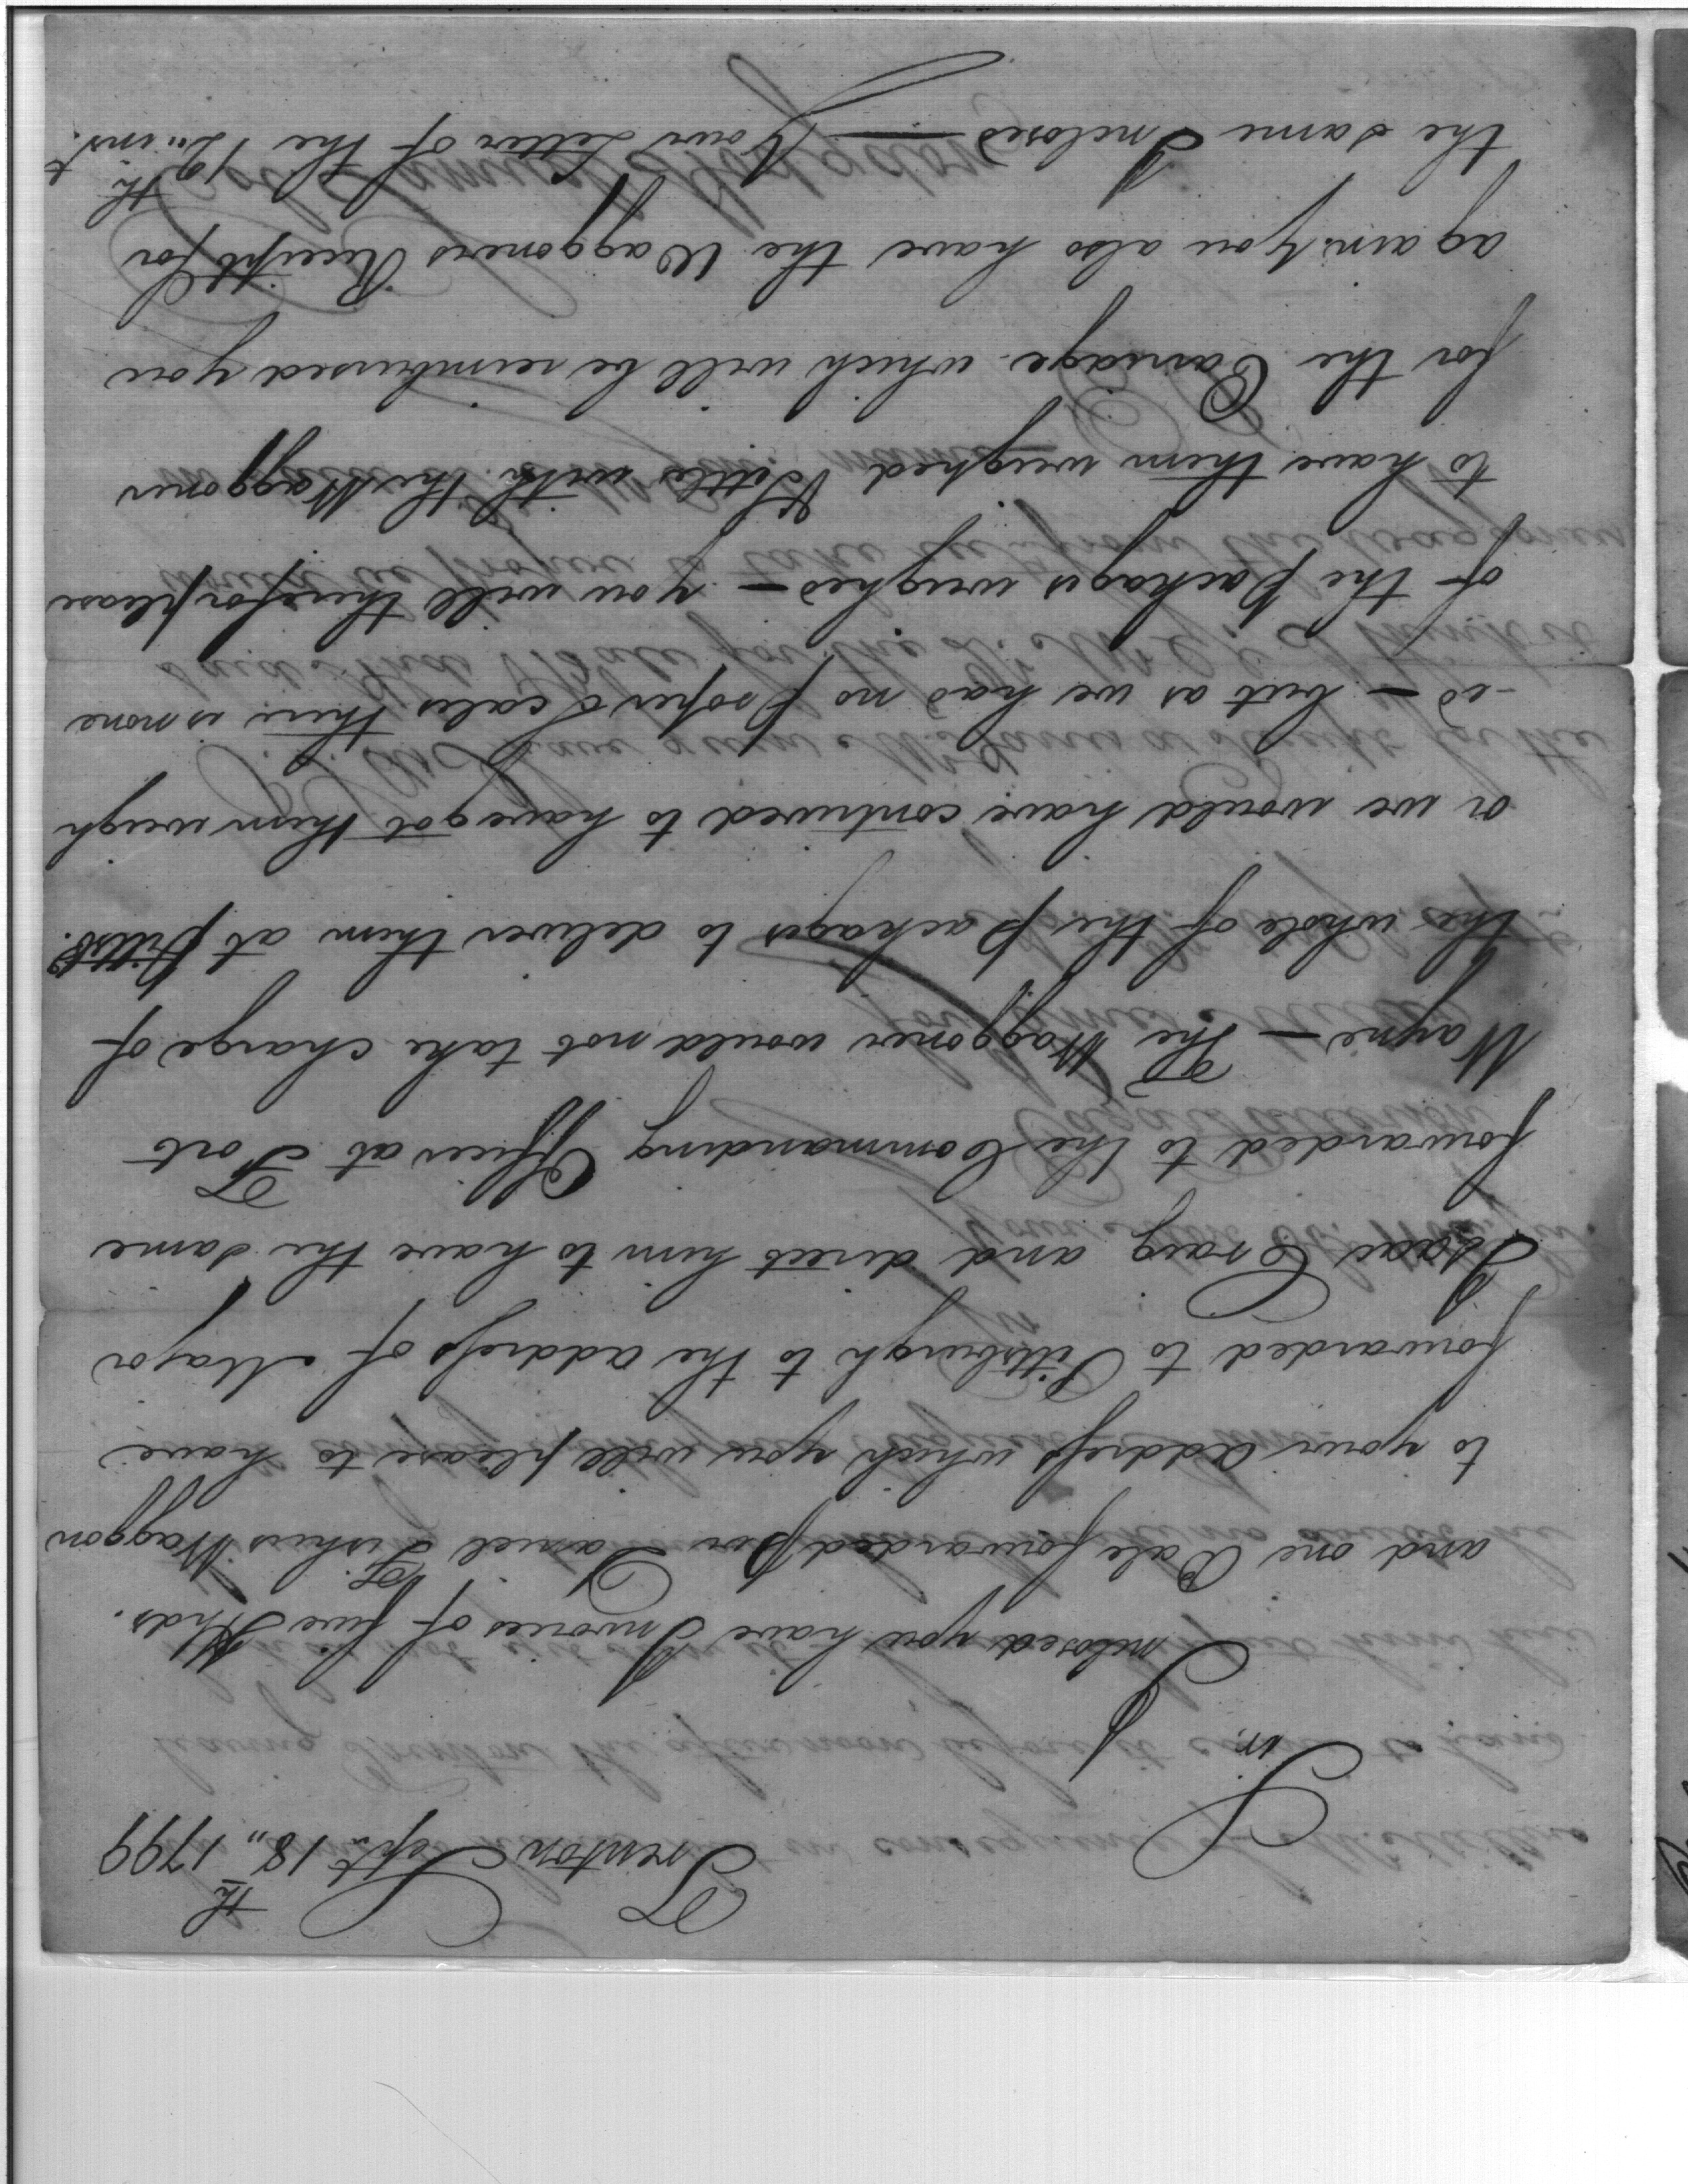 Trenton Sept. 18th 1799
Sir,
Inclosed you have Invoices of five Hhds.
and one Bale forwarded per Daniel Fishers Waggon
to your address which you will please to have
forwarded to Pittsburgh to the address of Major
Isaac Craig and direct him to have the same
forwarded to the Commanding Officer at Fort
Wayne — The Waggoner would not take charge of
the whole of the packages to deliver them at Pittsb.
or we would have contrived to have got them weigh
-ed — but as we had no proper Scales there is none
of the packages weighed — you will therefor please
to have them weighed & settle with the Waggoner
for the Carriage which will be reimbursed you
again. you also have the Waggoners Receipt for
the same Inclosed — Your Letter of the 12th inst.